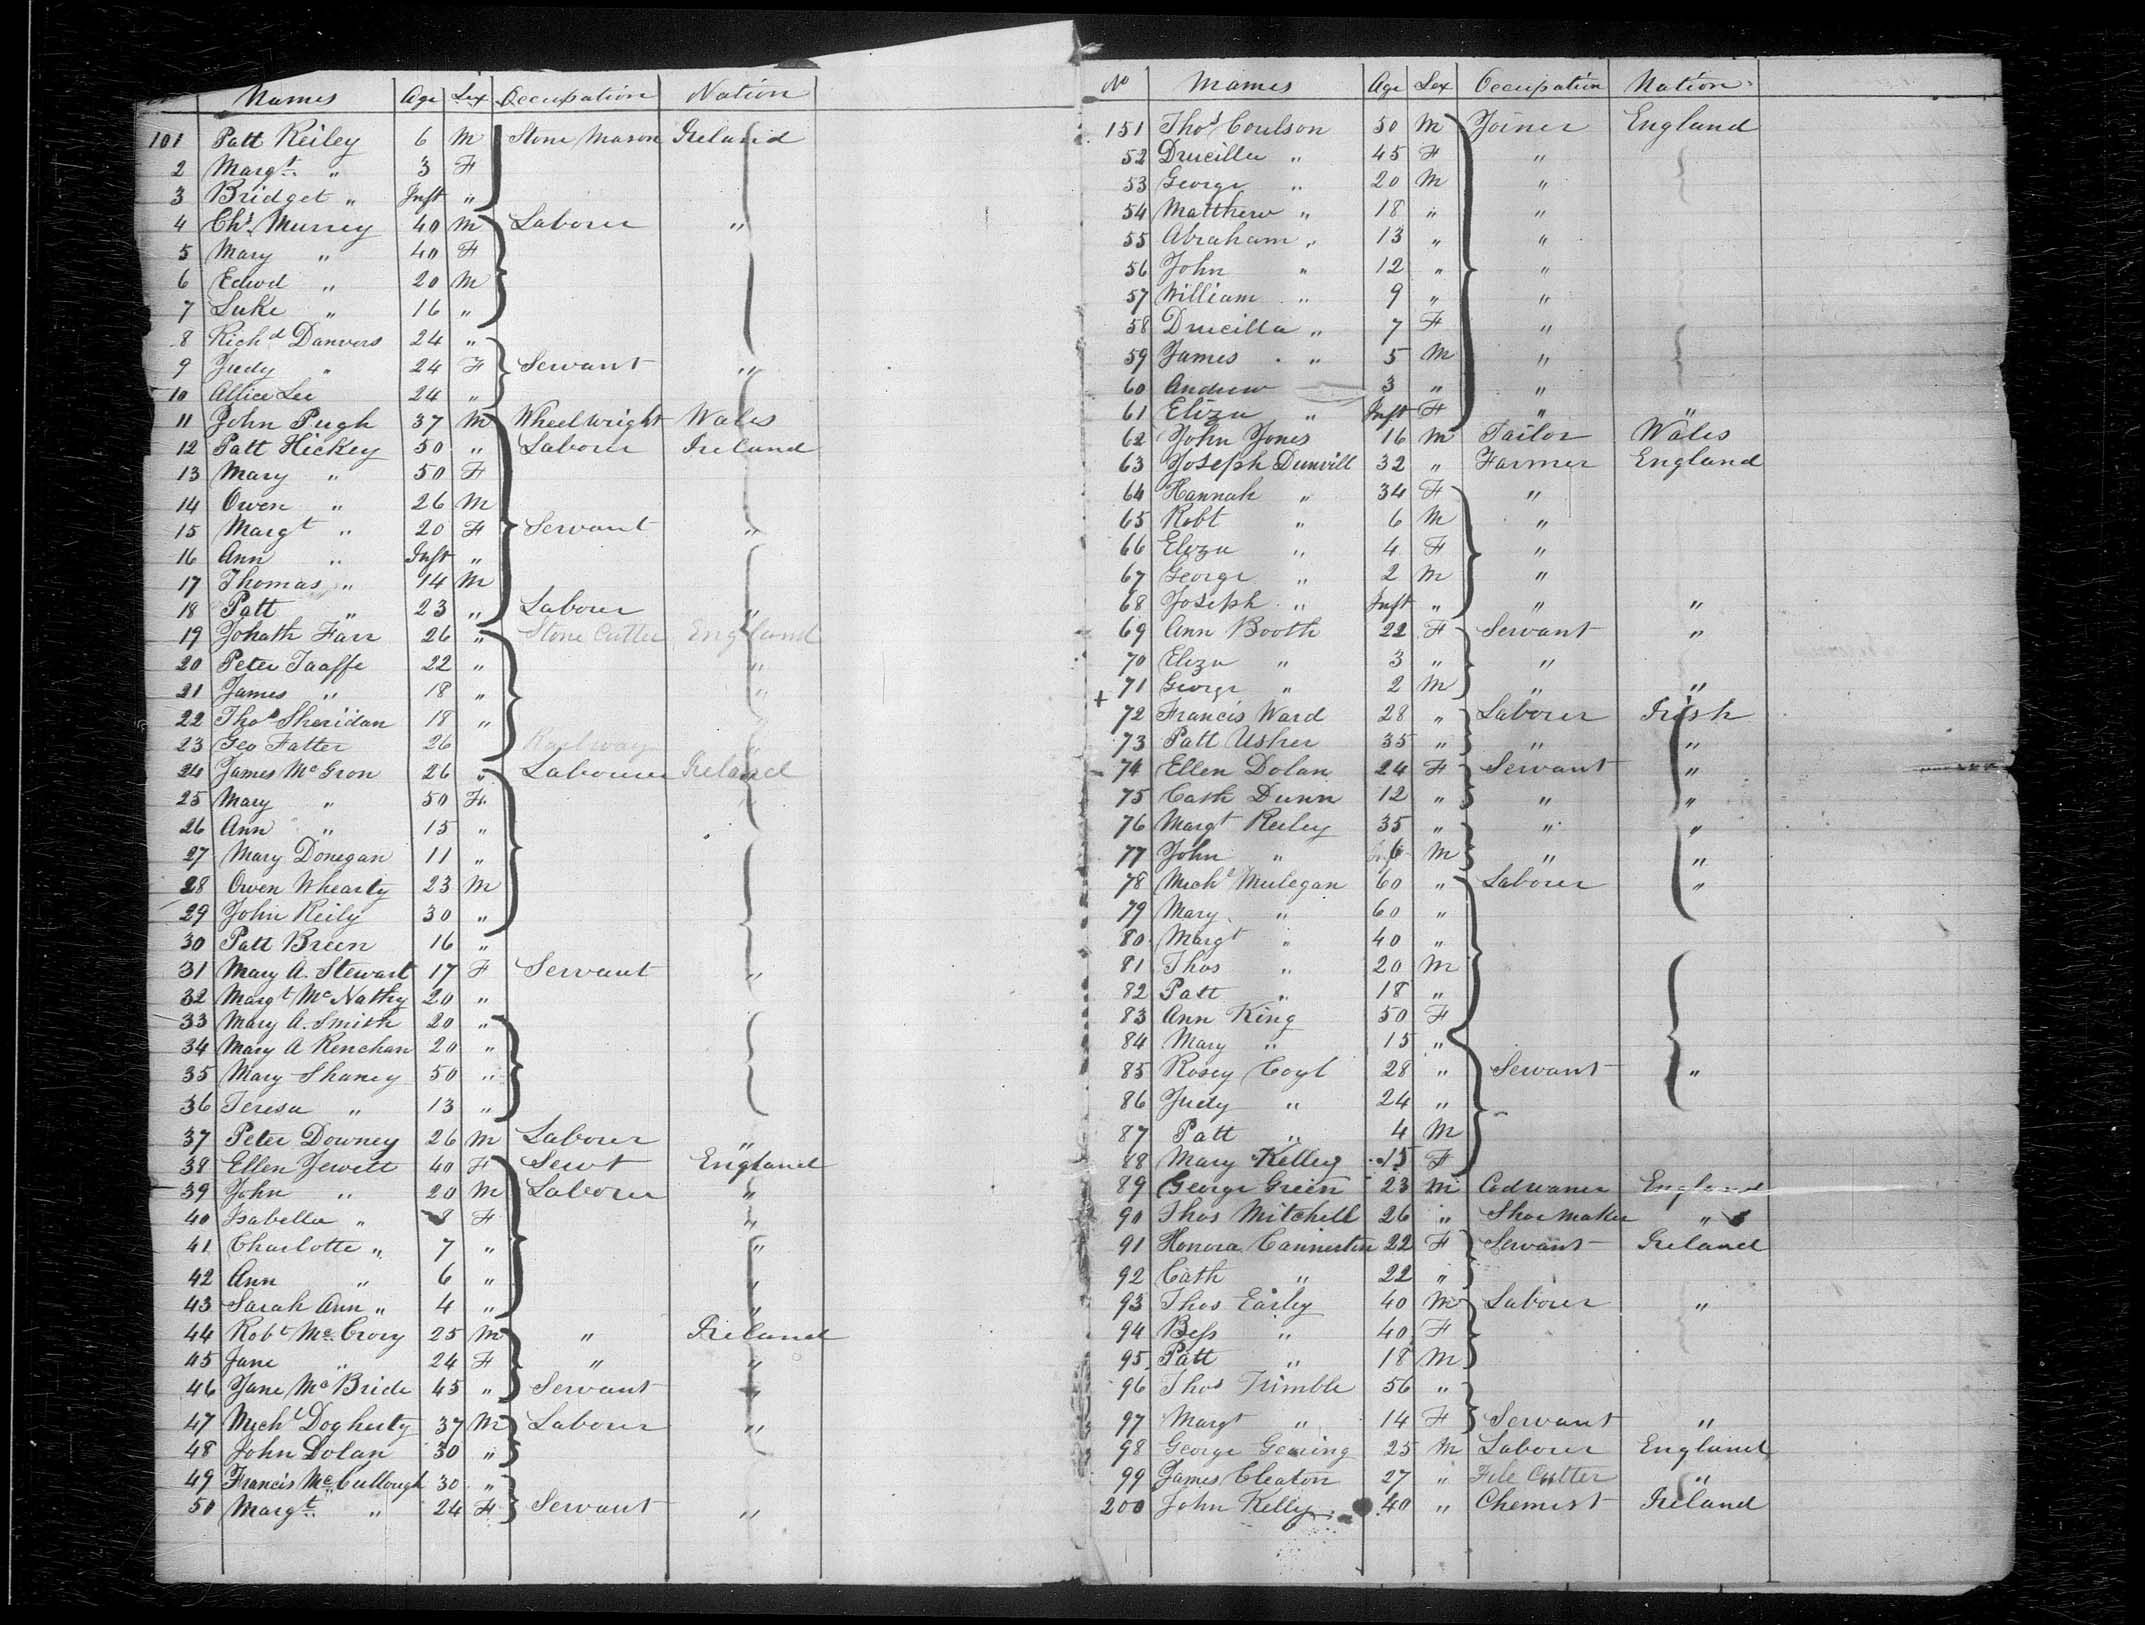 Names Age Sex Occupation Nation
101 Patt Reiley 6 M Stone Mason Ireland
2 Margt. " 3 F
3 Bridget " Inft "
4 Chs. Murrey 40 M Laborer "
5 Mary " 40 F
6 Edwd " 20 M
7 Luke " 16 "
8 Richd Danvers 24 "
9 Judy " 24 F Servant "
10 Allice Lee 24 "
11 John Pugh 37 M Wheelwright Wales
12 Patt Hickey 50 " Laborer Ireland
13 Mary " 50 F
14 Owen " 26 M
15 Margt " 20 F Servant "
16 Ann " Inft "
17 Thomas " 14 M
18 Patt " 23 " Laborer "
19 Johath Farr 26 " Stone Cutter England
20 Peter Taaffe 22 " "
21 James " 18 " "
22 Thos Sheridan 18 "
23 Geo Fatter 26 Railway "
24 James McGron 26 " Labourer Ireland
25 Mary " 50 F
26 Ann " 15 "
27 Mary Donegan 11 "
28 Owen Whearty 23 M
29 John Reily 30 "
30 Patt Breen 16 "
31 Mary A. Stewart 17 F Servant "
32 Margt McNathy 20 "
33 Mary A. Smith 20 "
34 Mary A Renchan 20 "
35 Mary Shaney 50 "
36 Teresa " 13 "
37 Peter Downey 26 M Laborer "
38 Ellen Jewett 40 F Sevt England
39 John " 20 M Laborer "
40 Isabella " 8 F "
41 Charlotte " 7 " "
42 Ann " 6 " "
43 Sarah Ann " 4 " "
44 Robt McCrory 25 M " Ireland
45 Jane " 24 F " "
46 Jane McBride 45 " Servant "
47 Michl Dogherty 37 M Laborer "
48 John Dolan 30 "
49 Francis McCullough 30 "
50 Margt. " 24 F Servant "
No Names Age Sex Occupation Nation
151 Thos Coulson 50 M Joiner England
52 Drucilla " 45 F "
53 George " 20 M "
54 Matthew " 18 " "
55 Abraham " 13 " "
56 John " 12 " "
57 William " 9 " "
58 Drucilla " 7 F "
59 James " 5 M "
60 Andrew 3 " "
61 Eliza " Inft F " "
62 John Jones 16 M Tailor Wales
63 Joseph Dunvill 32 " Farmer England
64 Hannah " 34 F "
65 Robt " 6 M "
66 Eliza " 4 F "
67 George " 2 M "
68 Joseph " Inft " " "
69 Ann Booth 22 F Servant "
70 Eliza " 3 " "
+ 71 George " 2 M " "
72 Francis Ward 28 " Laborer Irish
73 Patt Usher 35 " " "
74 Ellen Dolan 24 F Servant "
75 Cath Dunn 12 " " "
76 Margt Reiley 35 " " "
77 John " 6 M " "
78 Michl Mulegan 60 " Laborer "
79 Mary " 60 "
80 Margt " 40 "
81 Thos " 20 M
82 Patt " 18 "
83 Ann King 50 F
84 Mary " 15 "
85 Rosey Coyl 28 " Servant "
86 Judy " 24 "
87 Patt " 4 M
88 Mary Kelley 15 F
89 George Green 23 M Codwaner England
90 Thos Mitchell 26 " Shoe Maker "
91 Honora 22 F Servant Ireland
92 Cath " 22 "
93 Thos Earley 40 M Laborer "
94 Bess " 40 F
95 Patt " 18 M
96 Thos Trimble 56 "
97 Margt " 14 F Servant "
98 George Gearing 25 M Laborer England
99 James Cleaton 27 " File Cutter "
200 John Kelly 40 " Chemist Ireland